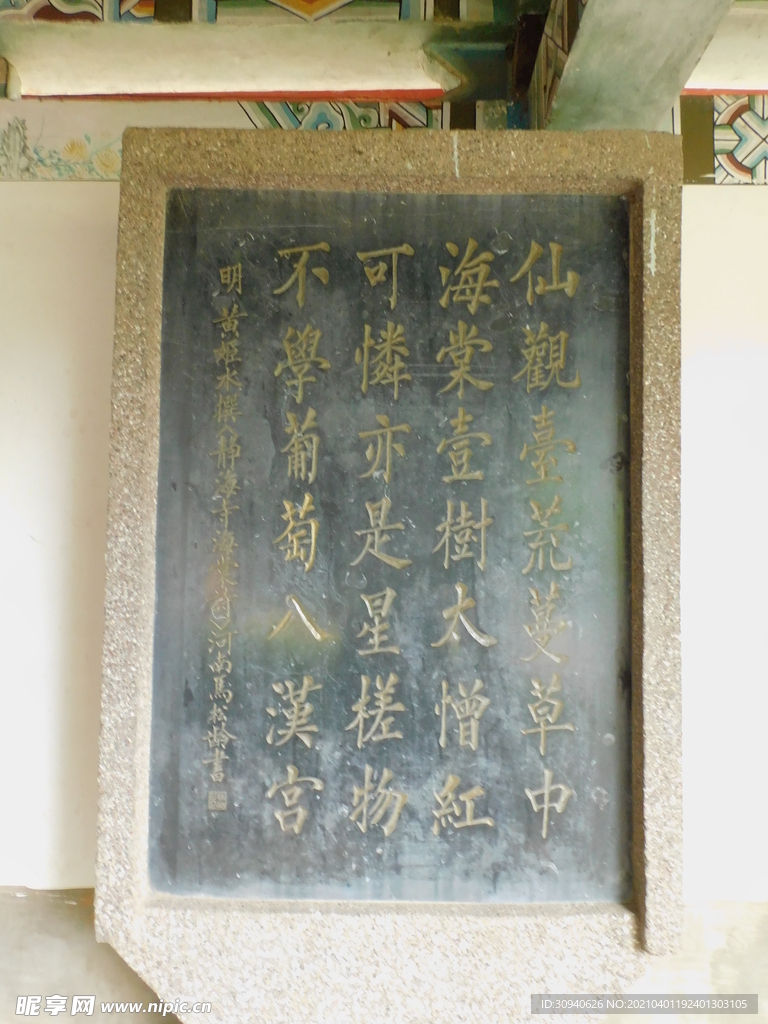 仙觀臺荒蔓草中
海棠壹樹太憎紅
可憐亦是星槎物
不學葡萄入漢宮
明 黄姬水撰 静海寺海棠 河南馬松龄書
昵享网 www.nipic.cn
ID:30940626 NO:20210401192401303105